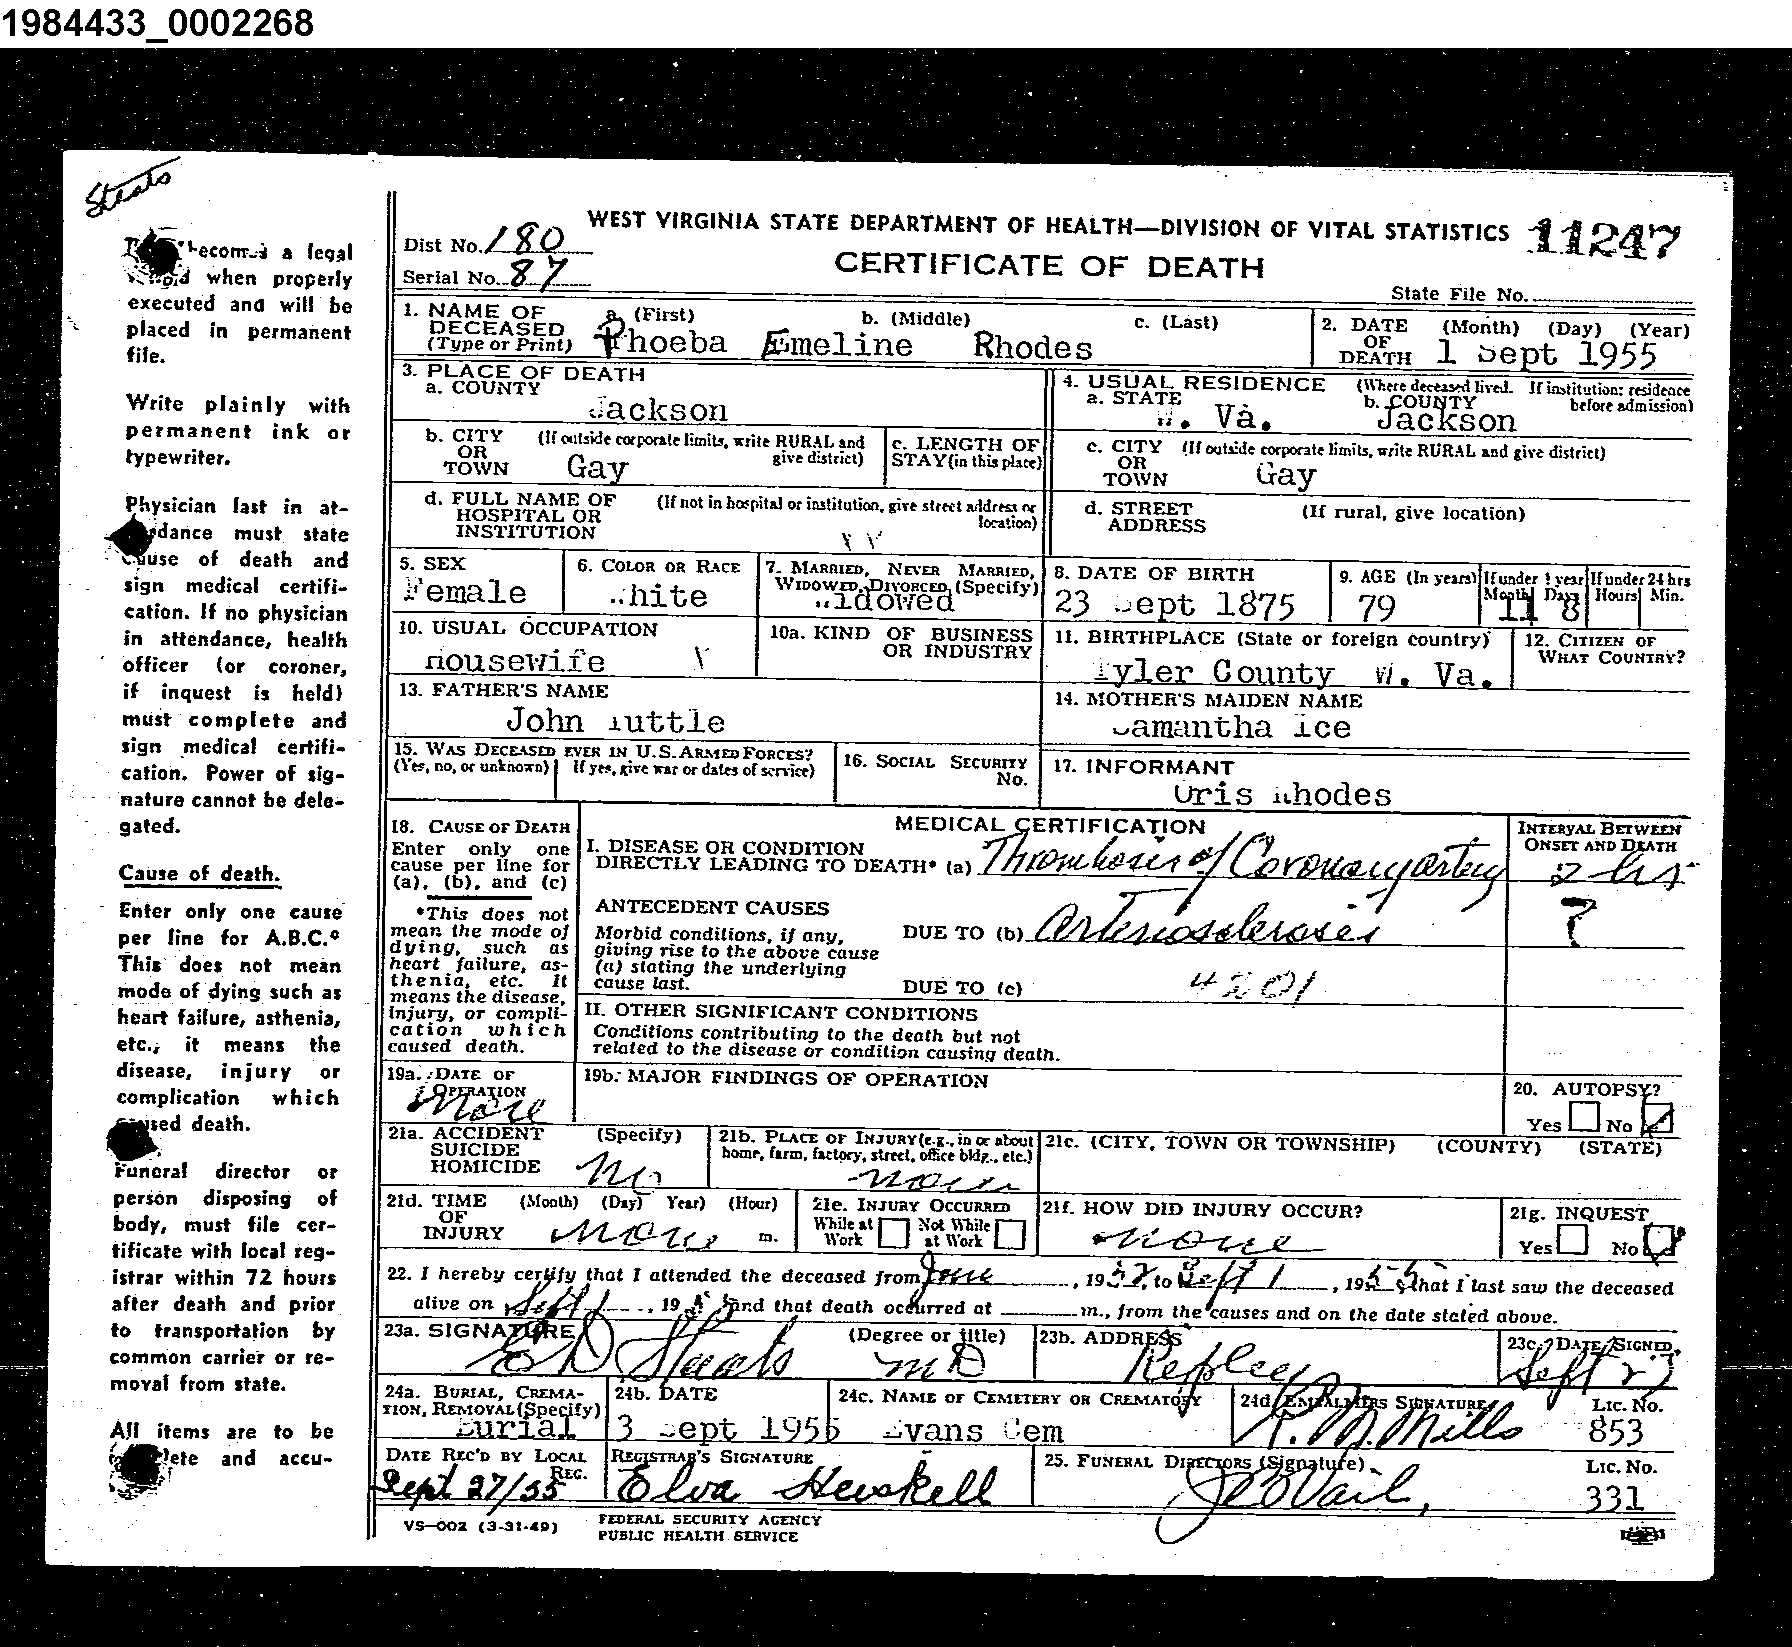 1984433_0002268
Steats
becomes a legal
when properly
executed and will be
placed in permanent
file.
Write plainly with
permanent ink or
typewriter.
Physician last in at-
dance must state
cause of death and
sign medical certifi-
cation. If no physician
in attendance, health
officer (or coroner,
if inquest is held)
must complete and
sign medical certifi-
cation. Power of sig-
nature cannot be dele-
gated.
Cause of death.
Enter only one cause
per line for A.B.C.*
This does not mean
mode of dying such as
heart failure, asthenia,
etc., it means the
disease, injury or
complication which
caused death.
Funeral director or
person disposing of
body, must file cer-
tificate with local reg-
istrar within 72 hours
after death and prior
to transportation by
common carrier or re-
moval from state.
All items are to be
lete and accu-
WEST VIRGINIA STATE DEPARTMENT OF HEALTH—DIVISION OF VITAL STATISTICS 11247
Dist No. 180
CERTIFICATE OF DEATH
Serial No. 87
State File No.
1. NAME OF DECEASED (Type or Print) a. (First) b. (Middle) c. (Last)
Phoeba Emeline Rhodes
2. DATE OF DEATH (Month) (Day) (Year)
1 Sept 1955
3. PLACE OF DEATH
a. COUNTY
Jackson
4. USUAL RESIDENCE (Where deceased lived. If institution: residence before admission)
a. STATE W. Va. b. COUNTY Jackson
b. CITY OR TOWN (If outside corporate limits, write RURAL and give district)
Gay
c. LENGTH OF STAY (in this place)
c. CITY OR TOWN (If outside corporate limits, write RURAL and give district)
Gay
d. FULL NAME OF HOSPITAL OR INSTITUTION (If not in hospital or institution, give street address or location)
d. STREET ADDRESS (If rural, give location)
5. SEX
Female
6. COLOR OR RACE
White
7. MARRIED, NEVER MARRIED, WIDOWED, DIVORCED (Specify)
Widowed
8. DATE OF BIRTH
23 Sept 1875
9. AGE (In years)
79
If under 1 year Months Days
11 8
If under 24 hrs Hours Min.
10. USUAL OCCUPATION
Housewife
10a. KIND OF BUSINESS OR INDUSTRY
11. BIRTHPLACE (State or foreign country)
Tyler County W. Va.
12. CITIZEN OF WHAT COUNTRY?
13. FATHER'S NAME
John Tuttle
14. MOTHER'S MAIDEN NAME
Samantha Ice
15. WAS DECEASED EVER IN U.S. ARMED FORCES?
(Yes, no, or unknown) If yes, give war or dates of service)
16. SOCIAL SECURITY No.
17. INFORMANT
Oris Rhodes
18. CAUSE OF DEATH
Enter only one cause per line for (a), (b), and (c)
*This does not mean the mode of dying, such as heart failure, asthenia, etc. It means the disease, injury, or complication which caused death.
MEDICAL CERTIFICATION
INTERVAL BETWEEN ONSET AND DEATH
I. DISEASE OR CONDITION DIRECTLY LEADING TO DEATH* (a) Thrombosis of Coronary artery 2 hrs
ANTECEDENT CAUSES
Morbid conditions, if any, giving rise to the above cause (a) stating the underlying cause last.
DUE TO (b) arteriosclerosis ?
DUE TO (c) 4201
II. OTHER SIGNIFICANT CONDITIONS
Conditions contributing to the death but not related to the disease or condition causing death.
19a. DATE OF OPERATION
None
19b. MAJOR FINDINGS OF OPERATION
20. AUTOPSY?
Yes No
21a. ACCIDENT SUICIDE HOMICIDE (Specify)
No
21b. PLACE OF INJURY (e.g., in or about home, farm, factory, street, office bldg., etc.)
none
21c. (CITY, TOWN OR TOWNSHIP) (COUNTY) (STATE)
21d. TIME OF INJURY (Month) (Day) Year) (Hour)
none m.
21e. INJURY OCCURRED
While at Work Not While at Work
21f. HOW DID INJURY OCCUR?
none
21g. INQUEST
Yes No
22. I hereby certify that I attended the deceased from June, 1952, to Sept 1, 1955, that I last saw the deceased
alive on Sept 1, 1955 and that death occurred at m., from the causes and on the date stated above.
23a. SIGNATURE (Degree or title)
ED Staats MD
23b. ADDRESS
Ripley
23c. DATE SIGNED
Sept 27
24a. BURIAL, CREMATION, REMOVAL (Specify)
Burial
24b. DATE
3 Sept 1955
24c. NAME OF CEMETERY OR CREMATORY
Evans Cem
24d. EMBALMERS SIGNATURE
K. M. Mills
LIC. NO.
853
DATE REC'D BY LOCAL REG.
Sept 27/55
REGISTRAR'S SIGNATURE
Elva Heiskell
25. FUNERAL DIRECTORS (Signature)
Vail,
LIC. NO.
331
VS—002 (3-31-49)
FEDERAL SECURITY AGENCY
PUBLIC HEALTH SERVICE